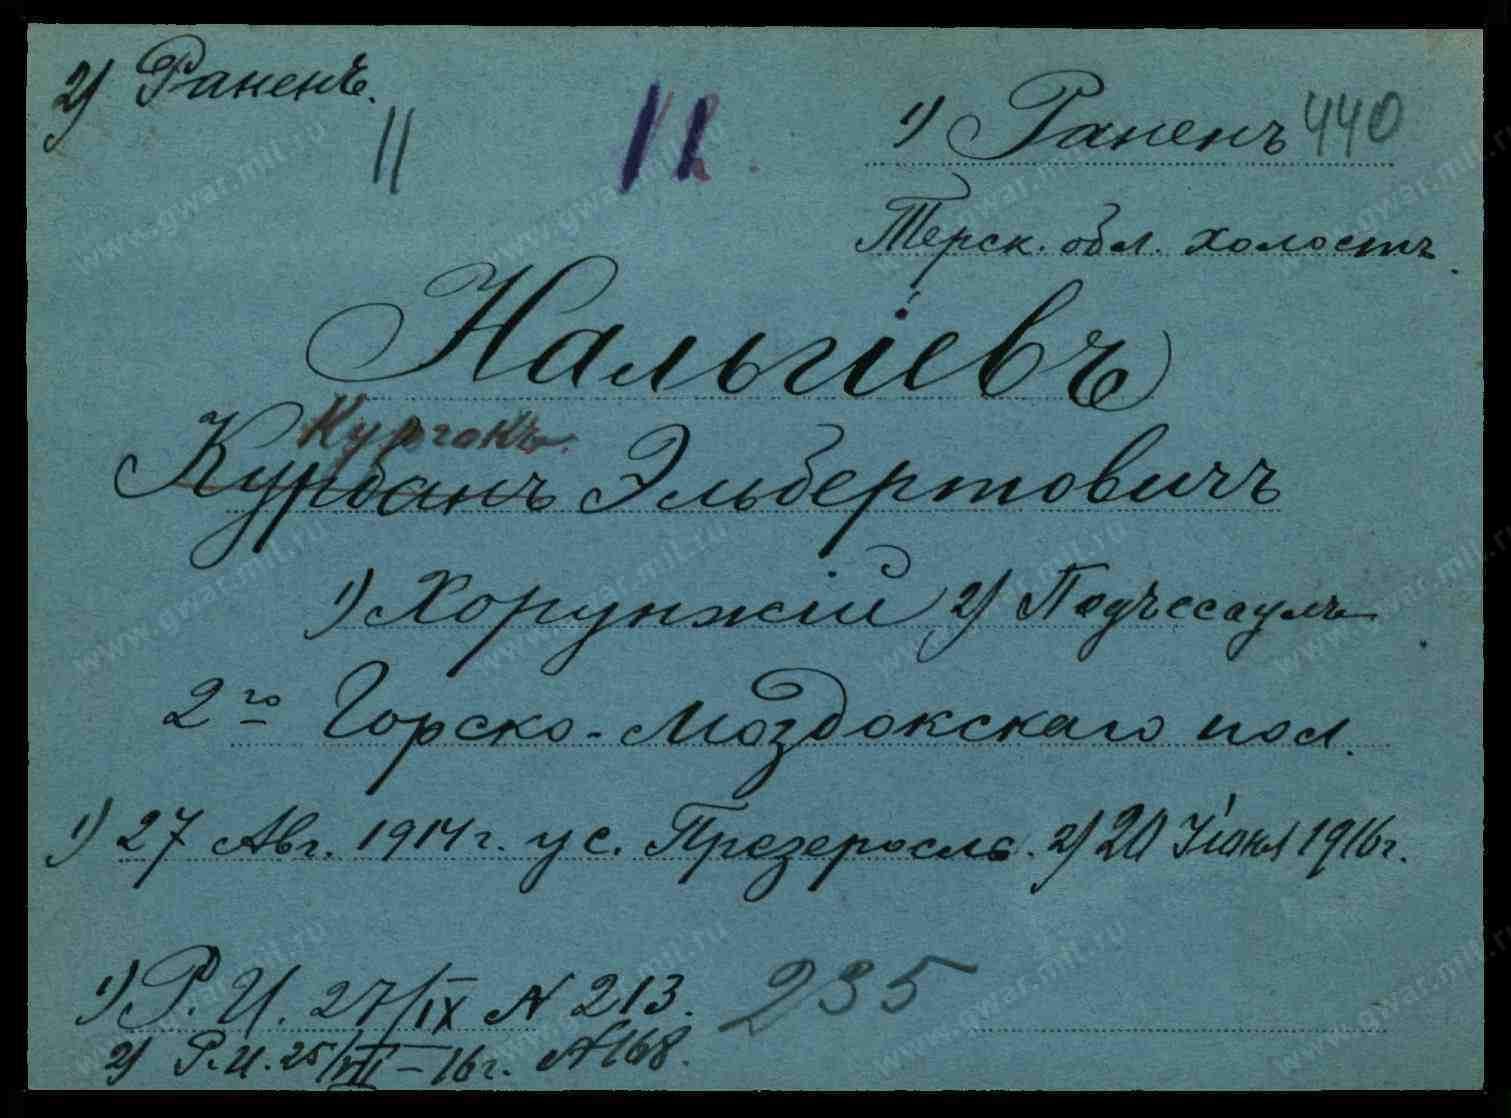 2) Раненъ.
11
1) Раненъ 440
Терск. обл. холостъ.
Нальгіевъ
Кургокъ.
Курбанъ Эльбертовичъ
1) Хорунжій 2) Подъесаулъ
2го Горско-Моздокскаго пол.
1) 27 Авг. 1914 г. у с. 2) 20 Іюня 1916 г.
1) Р. И. 27/IX № 213. 235
2) Р. И. 25/VII – 16 г. № 168.
www.gwar.mil.ru